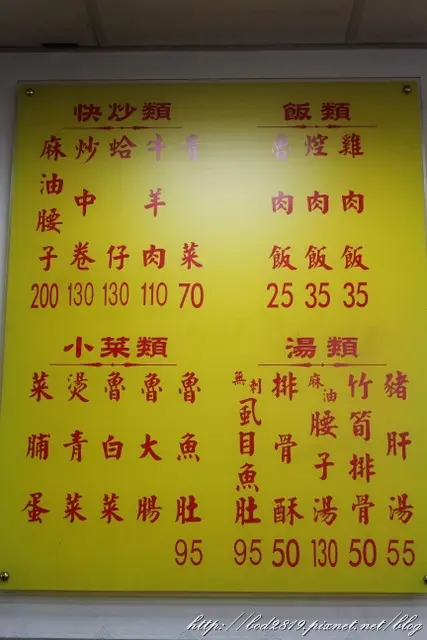 快炒類
麻油腰子 200
炒中卷 130
蛤仔 130
牛羊肉 110
青菜 70
飯類
魯肉飯 25
焢肉飯 35
雞肉飯 35
小菜類
菜脯蛋
燙青菜
魯白菜
魯大腸
魯魚肚 95
湯類
無刺虱目魚肚 95
排骨酥 50
麻油腰子湯 130
竹筍排骨 50
豬肝湯 55
http://bod2819.pixnet.net/blog